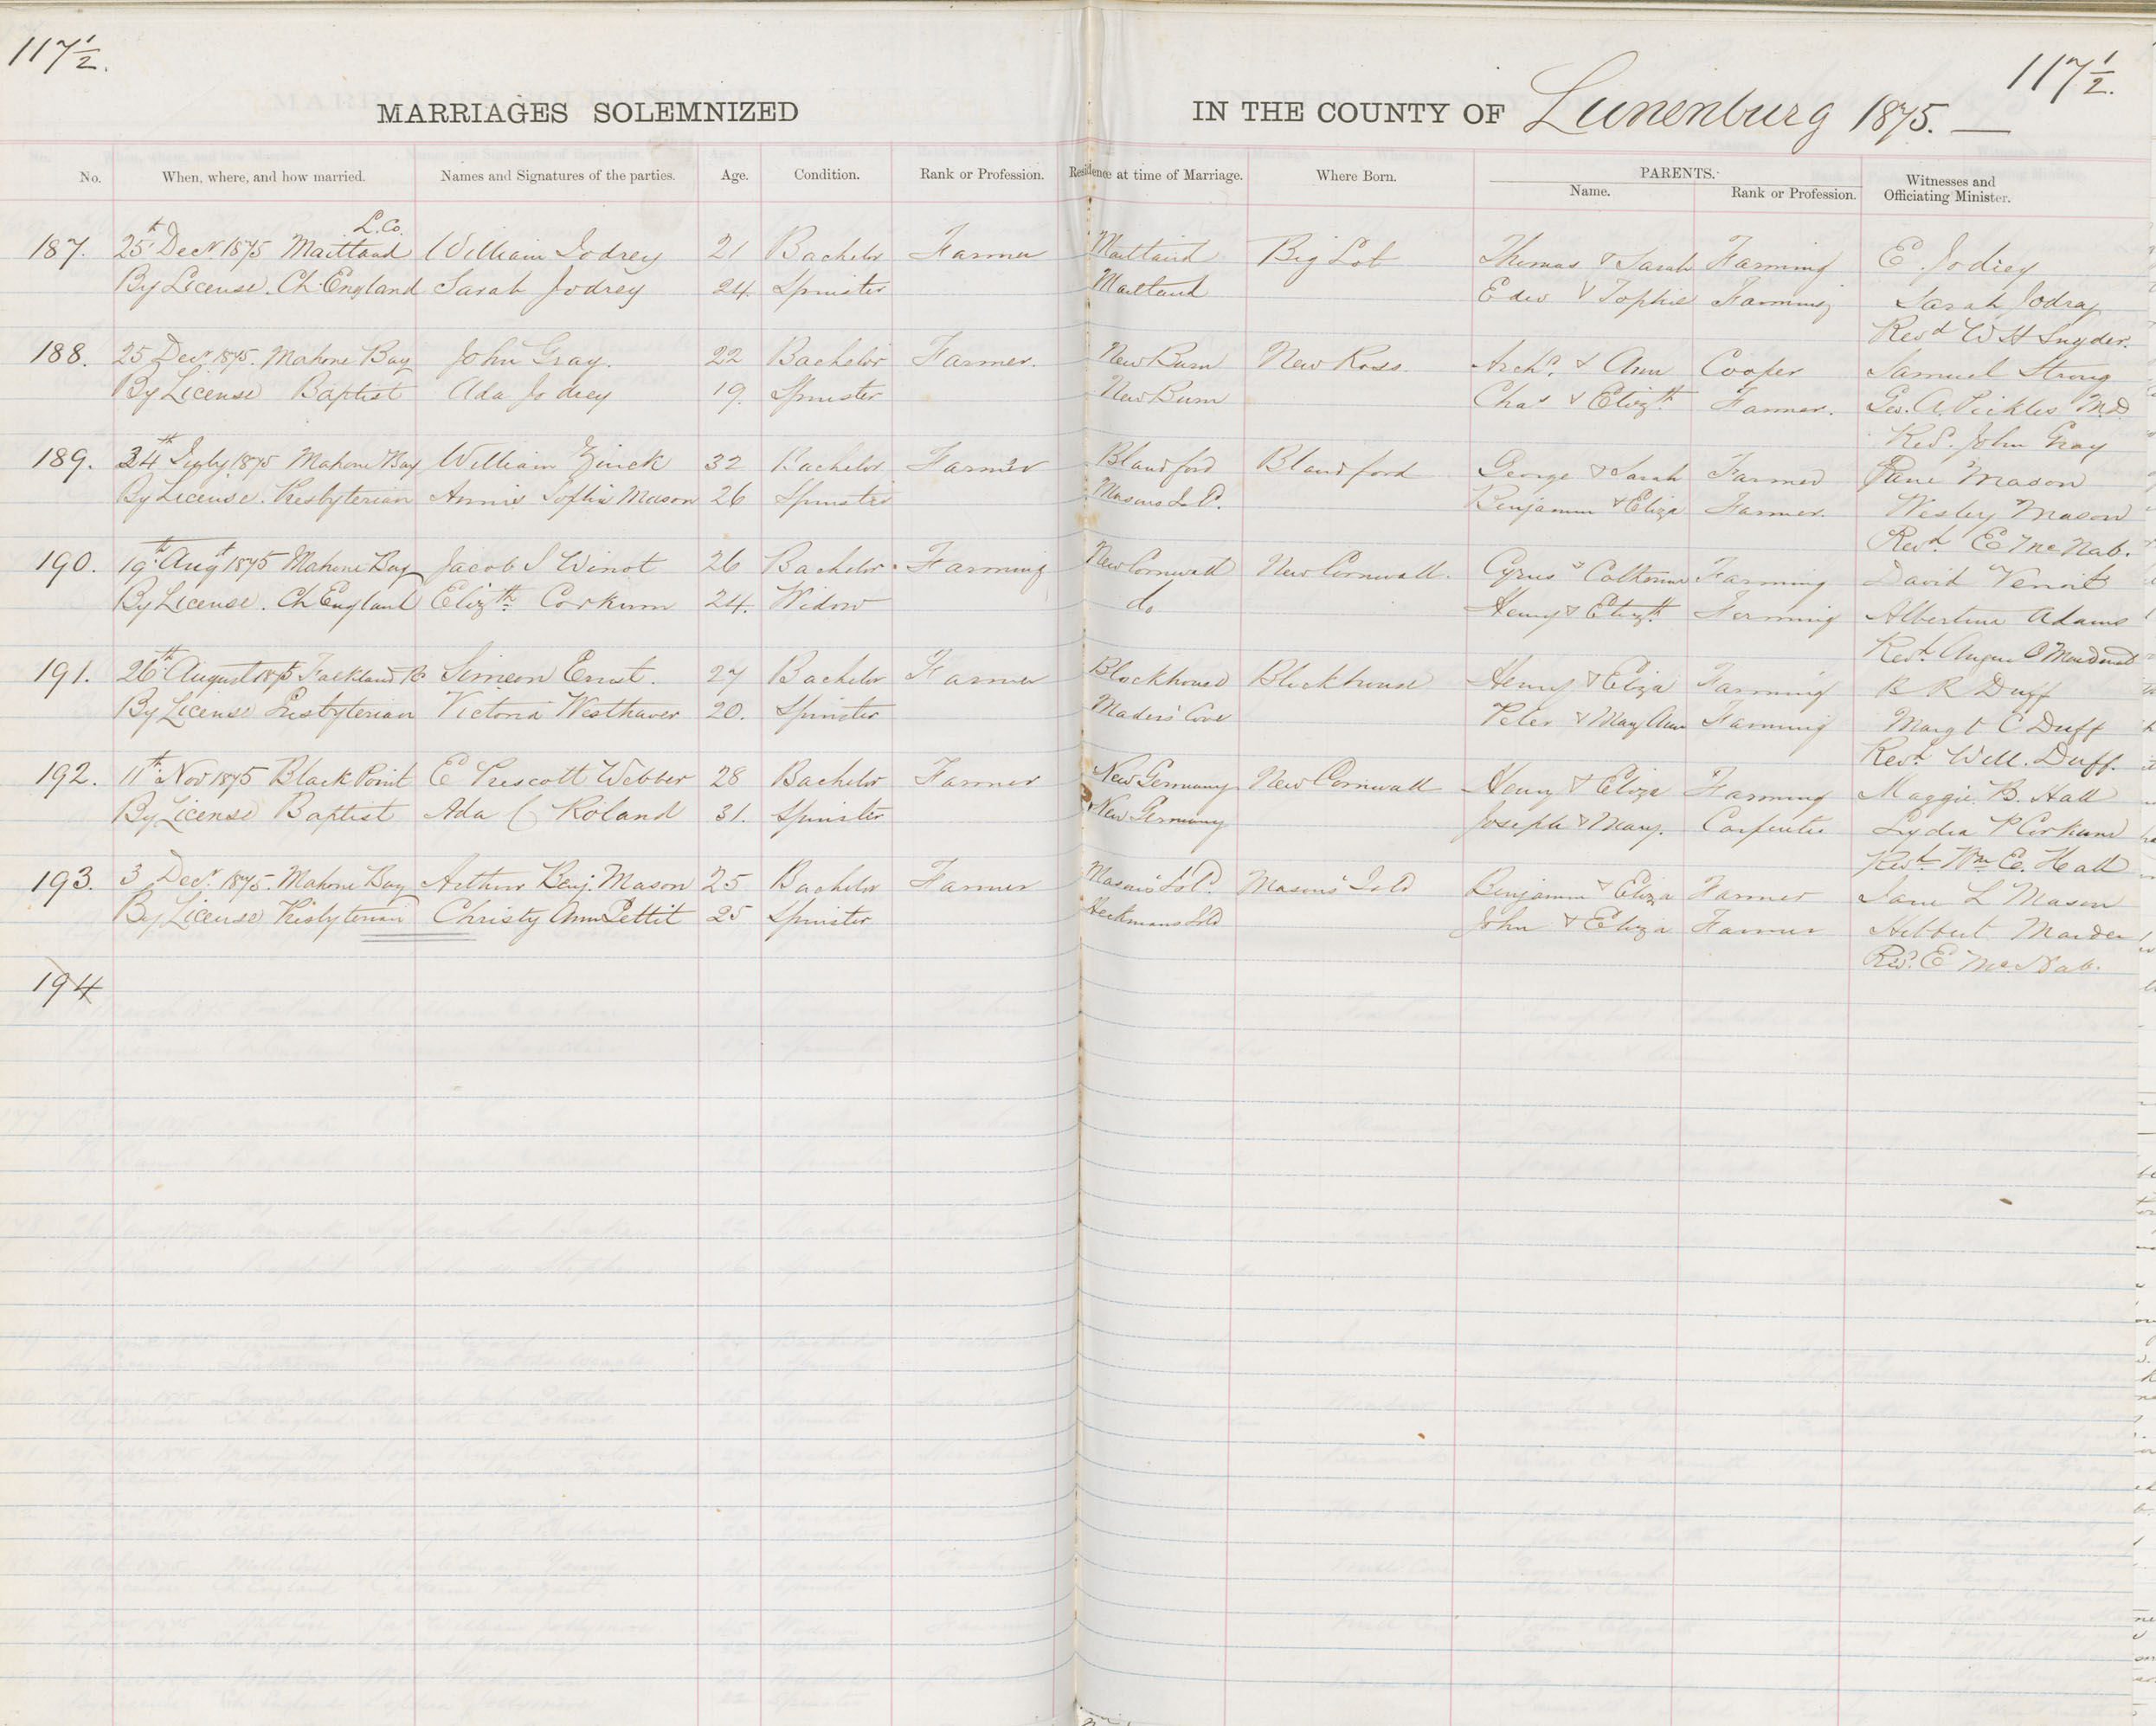 117½.
117½.
MARRIAGES SOLEMNIZED IN THE COUNTY OF Lunenburg 1875. —
No. When, where, and how married. Names and Signatures of the parties. Age. Condition. Rank or Profession. Residence at time of Marriage. Where Born. PARENTS. Witnesses and Officiating Minister.
Name. Rank or Profession.
L. Co.
187. 25th Decr 1875 Maitland William Jodrey 21 Bachelor Farmer Maitland Big Lot Thomas & Sarah Farming E. Jodrey
By License. Ch. England Sarah Jodrey 24. Spinster Maitland Edw & Sophie Farming Sarah Jodrey
Revd W H Snyder.
188. 25 Decr 1875. Mahone Bay John Gray. 22 Bachelor Farmer. New Burn New Ross. Archd. & Ann Cooper Samuel Strong
By License Baptist Ada Jodrey 19. Spinster New Burn Chas & Elizth Farmer. Geo. A. Pickles M.D.
Revd. John Gray
189. 24th July 1875 Mahone Bay William Zinck 32 Bachelor Farmer Blandford Blandford George & Sarah Farmer Jane Mason
By License. Presbyterian Annie Sophia Mason 26 Spinster Masons Isld. Benjamin & Eliza Farmer. Wesley Mason
Revd. E McNab.
190. 19th Augt 1875 Mahone Bay Jacob S Winot 26 Bachelor. Farming New Cornwall New Cornwall. Cyrus & Cathrine Farming David Venoit
By License. Ch England Elizth Corkum 24. Widow do Henry & Elizth. Farming Albertina Adams
Revd.
191. 26th August 1875 Falkland R. Simeon Ernst. 27 Bachelor Farmer Blockhouse Blockhouse Henry & Eliza Farming R R Duff
By License Presbyterian Victoria Westhaver 20. Spinster Maders Cove Peter & Mary Ann Farming Margt C Duff
Revd. Will. Duff.
192. 11th Nov 1875 Black Point E Prescott Webber 28 Bachelor Farmer New Germany New Cornwall Henry & Eliza Farming Maggie B. Hall
By License Baptist Ada C Roland 31. Spinster New Germany Joseph & Mary. Carpenter Lydia P Corkum
Revd. Wm E. Hall
193. 3 Decr. 1875. Mahone Bay Arthur Benj. Mason 25 Bachelor Farmer Masons Isld. Masons Isld Benjamin & Eliza Farmer Jane L Mason
By License Presbyterian Christy Ann Pettit 25 Spinster Heckmans Isld John & Eliza Farmer Hibbert Mader
Revd. E McNab.
194